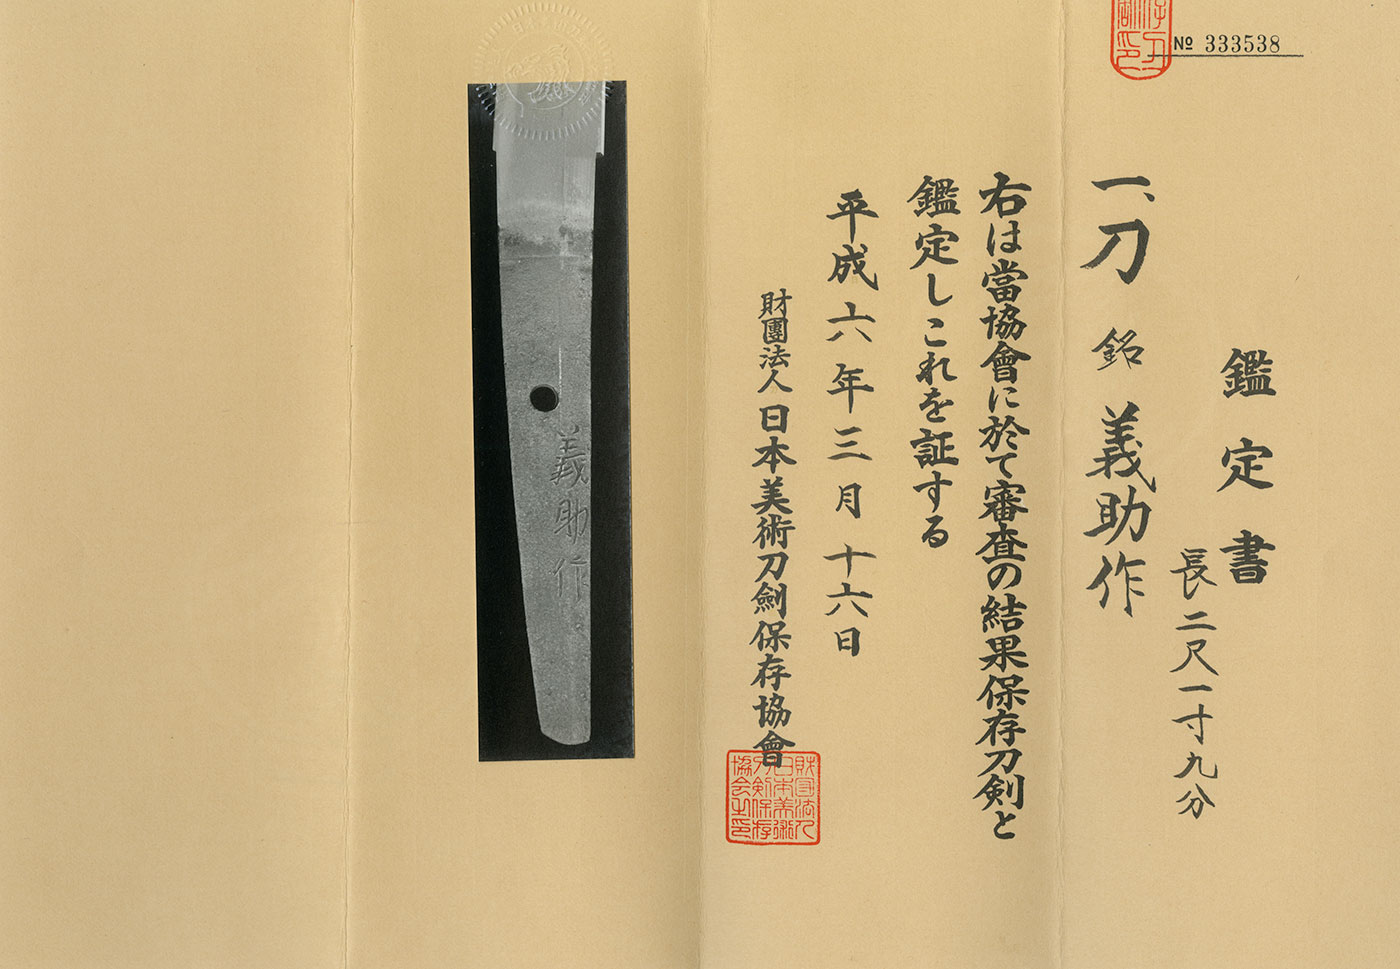 № 333538
鑑定書
一、刀 銘 義助作
長二尺一寸九分
右は當協會に於て審査の結果保存刀剣と
鑑定しこれを証する
平成六年三月十六日
財團法人日本美術刀劍保存協會
財団法人
日本美術
刀剣保存
協会之印
義助作